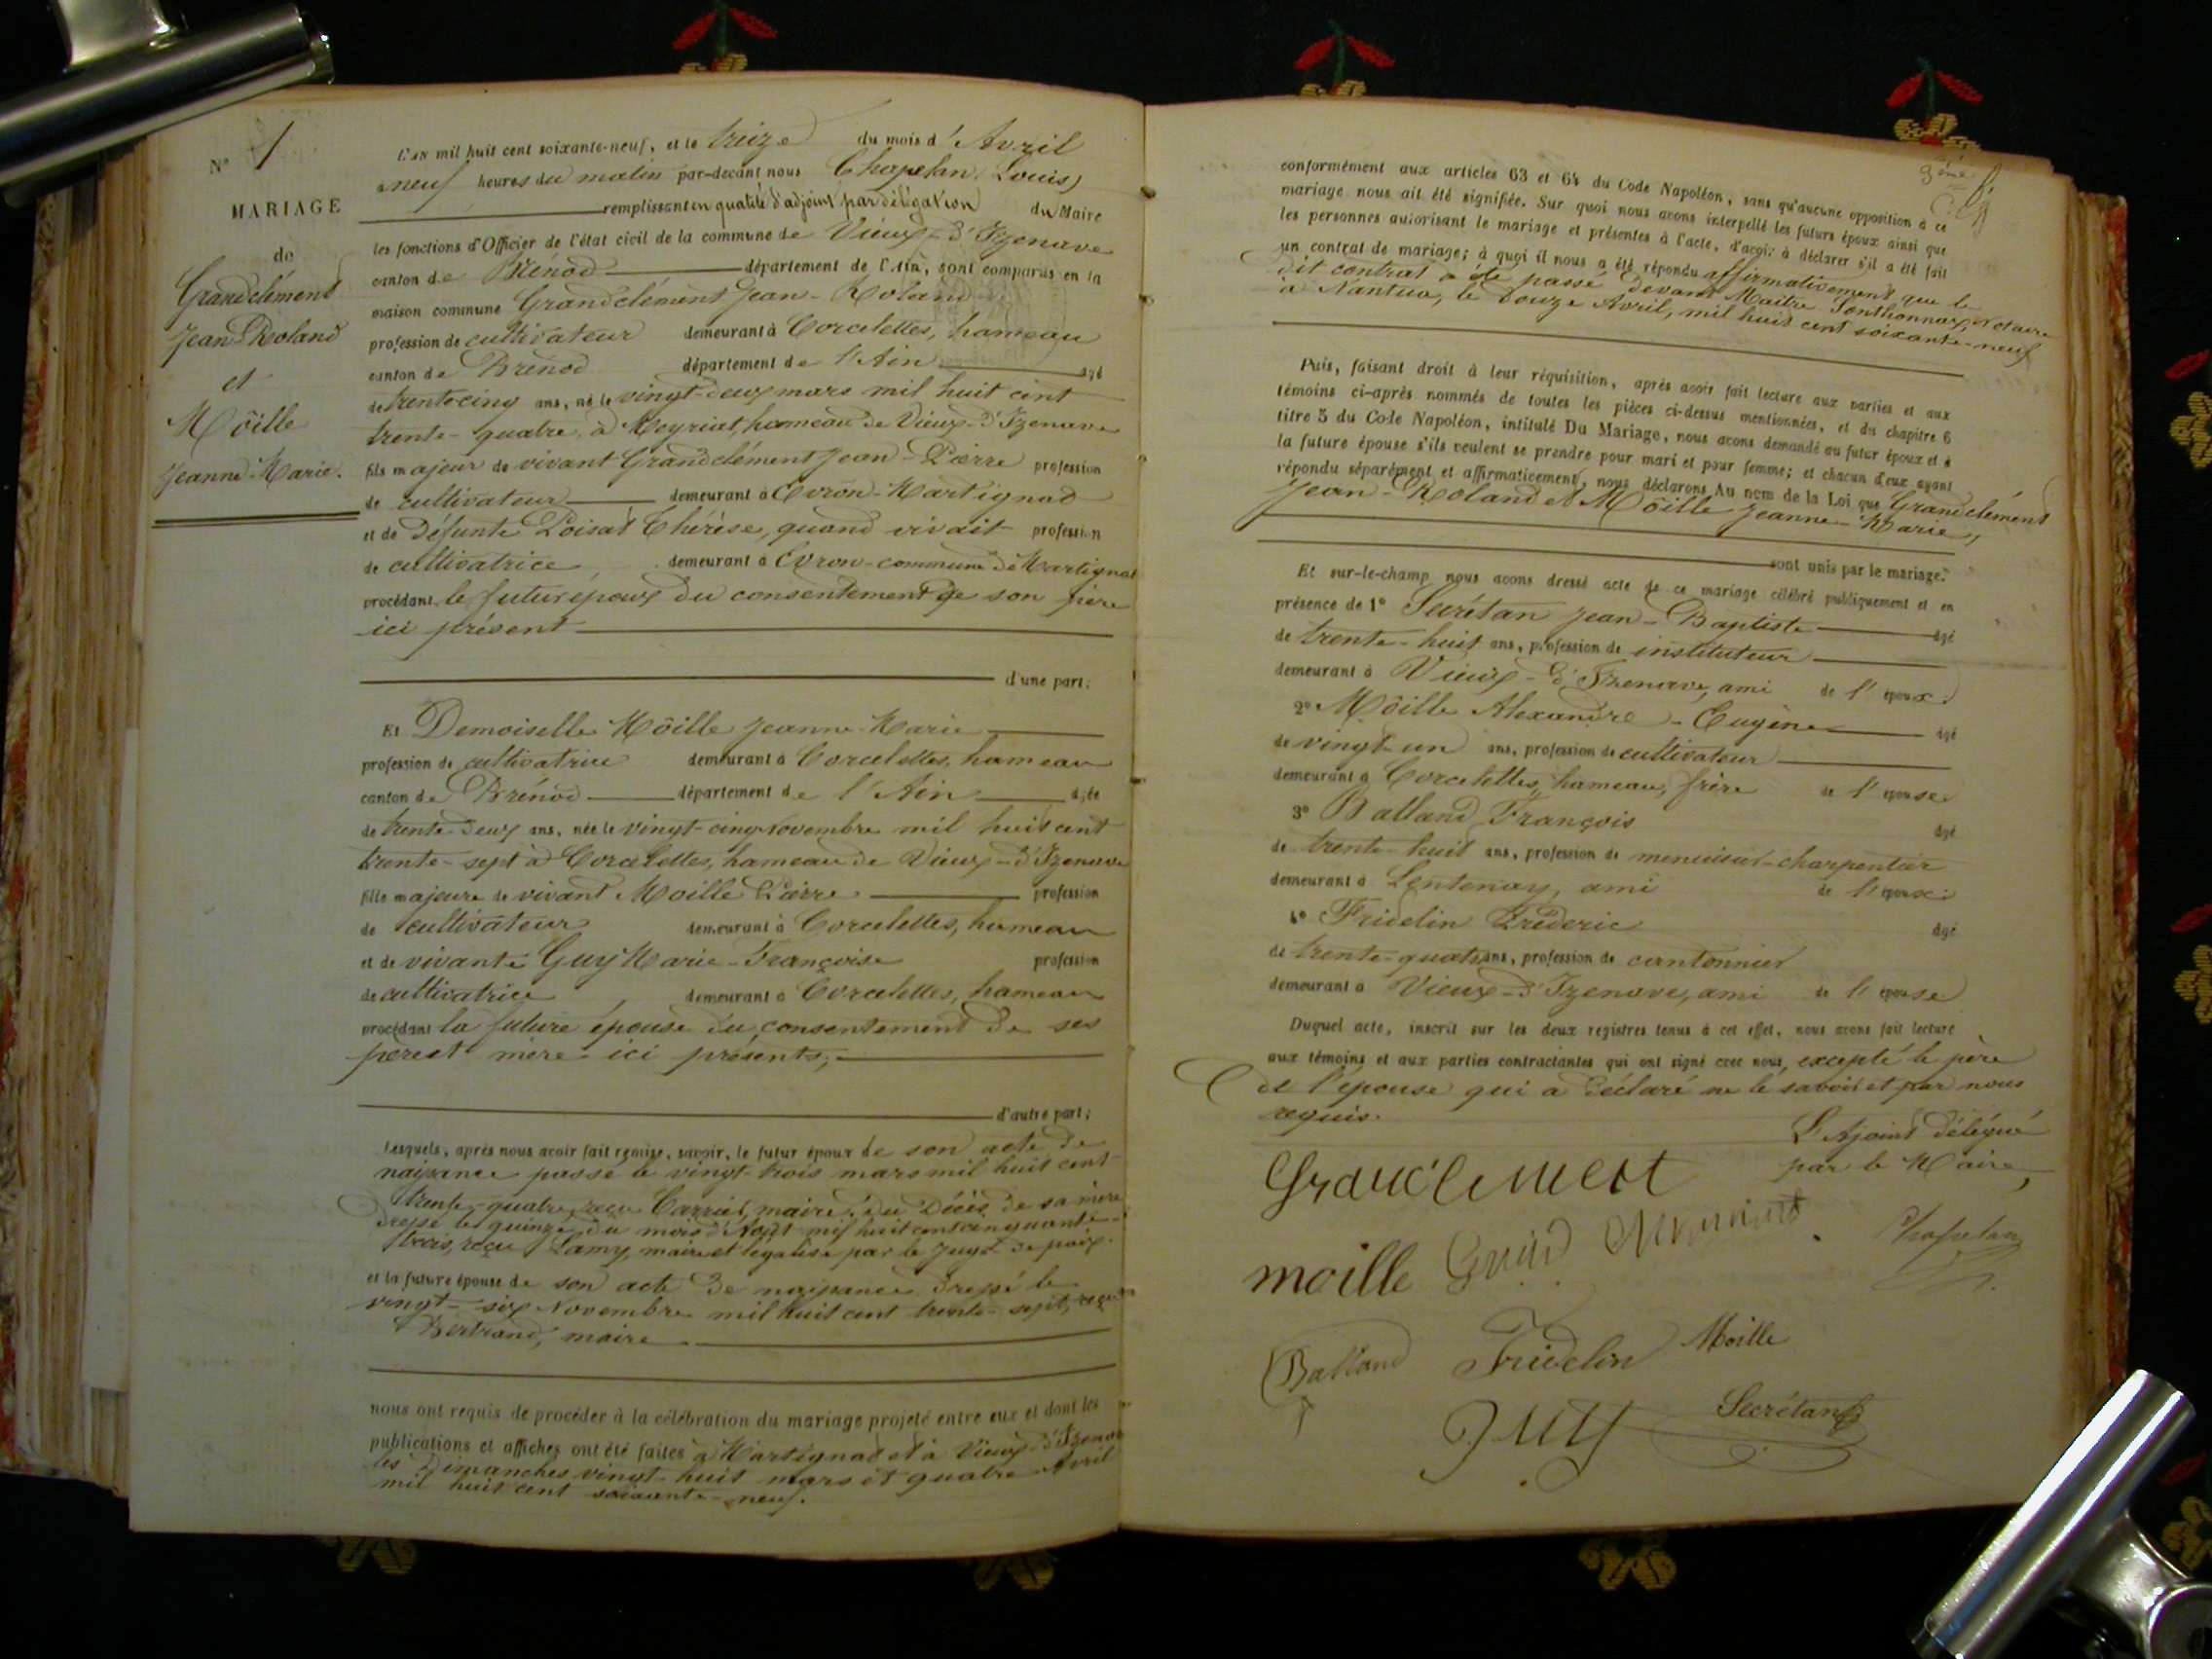 N° 1
MARIAGE
de
Grandclément
Jean-Roland
et
Môille
Jeanne-Marie.
L'AN mil huit cent soixante-neuf, et le treize du mois d'Avril
à neuf heures du matin par-devant nous Chapelan Louis,
remplissant en qualité d'adjoint par délégation du Maire
les fonctions d'Officier de l'état civil de la commune de Vieux-d'Izenave
canton de Brénod département de l'Ain, sont comparus en la
maison commune Grandclément Jean-Roland
profession de cultivateur demeurant à Corcelettes, hameau
canton de Brénod département de l'Ain âgé
de trente cinq ans, né le vingt-deux mars mil huit cent
trente-quatre, à Meyriat, hameau de Vieux-d'Izenave
fils majeur de vivant Grandclément Jean-Pierre profession
de cultivateur demeurant à Evron-Martignat
et de défunte Poisat Thérèse, quand vivait profession
de cultivatrice, demeurant à Evron-commune de Martignat
procédant le futur époux du consentement de son père
ici présent
d'une part;
Et Demoiselle Môille Jeanne-Marie
profession de cultivatrice demeurant à Corcelettes, hameau
canton de Brénod département de l'Ain âgée
de trente-deux ans, née le vingt-cinq Novembre mil huit cent
trente-sept à Corcelettes, hameau de Vieux-d'Izenave
fille majeure de vivant Moille Pierre profession
de cultivateur demeurant à Corcelettes, hameau
et de vivante Guy Marie-Françoise profession
de cultivatrice, demeurant à Corcelettes, hameau
procédant la future épouse du consentement de ses
père et mère ici présents;
d'autre part;
Lesquels, après nous avoir fait remise, savoir, le futur époux de son acte de
naissance passé le vingt-trois mars mil huit cent
trente-quatre, reçu Carrier, maire; du Décès de sa mère
dressé le quinze du mois d'Août mil huit cent cinquante-
trois, reçu Lamy, maire et légalisé par le Juge de paix.
et la future épouse de son acte de naissance dressé le
vingt-six Novembre mil huit cent trente-sept, reçu
Bertrand, maire
nous ont requis de procéder à la célébration du mariage projeté entre eux et dont les
publications et affiches ont été faites à Martignat et à Vieux-d'Izenave
les Dimanches vingt-huit mars et quatre Avril
mil huit cent soixante-neuf.
3ème
conformément aux articles 63 et 64 du Code Napoléon, sans qu'aucune opposition à ce
mariage nous ait été signifiée. Sur quoi nous avons interpellé les futurs époux ainsi que
les personnes autorisant le mariage et présentes à l'acte, d'avoir à déclarer s'il a été fait
un contrat de mariage; à quoi il nous a été répondu affirmativement que le
dit contrat a été passé devant Maître Sonthonnax, Notaire
à Nantua, le douze Avril, mil huit cent soixante-neuf
Puis, faisant droit à leur réquisition, après avoir fait lecture aux parties et aux
témoins ci-après nommés de toutes les pièces ci-dessus mentionnées, et du chapitre 6
titre 5 du Code Napoléon, intitulé Du Mariage, nous avons demandé au futur époux et à
la future épouse s'ils veulent se prendre pour mari et pour femme; et chacun d'eux ayant
répondu séparément et affirmativement, nous déclarons Au nom de la Loi que Grandclément
Jean-Roland et Môille Jeanne-Marie,
sont unis par le mariage.
Et sur-le-champ nous avons dressé acte de ce mariage célébré publiquement et en
présence de 1° Secrétan Jean-Baptiste âgé
de trente-huit ans, profession de instituteur
demeurant à Vieux-d'Izenave, ami de l'époux
2° Môille Alexandre-Eugène âgé
de vingt-un ans, profession de cultivateur
demeurant à Corcelettes, hameau, frère de l'épouse
3° Balland François âgé
de trente-huit ans, profession de menuisier-charpentier
demeurant à Lentenay, ami de l'époux
4° Fridelin Fréderic âgé
de trente-quatre ans, profession de cantonnier
demeurant à Vieux-d'Izenave, ami de l'épouse
Duquel acte, inscrit sur les deux registres tenus à cet effet, nous avons fait lecture
aux témoins et aux parties contractantes qui ont signé avec nous, excepté le père
de l'épouse qui a déclaré ne le savoir et par nous
requis.
L'Ajoint délégué
par le Maire,
Grandclement
moille
Chapelan
Balland Fridelin Moille
Guy Secrétan